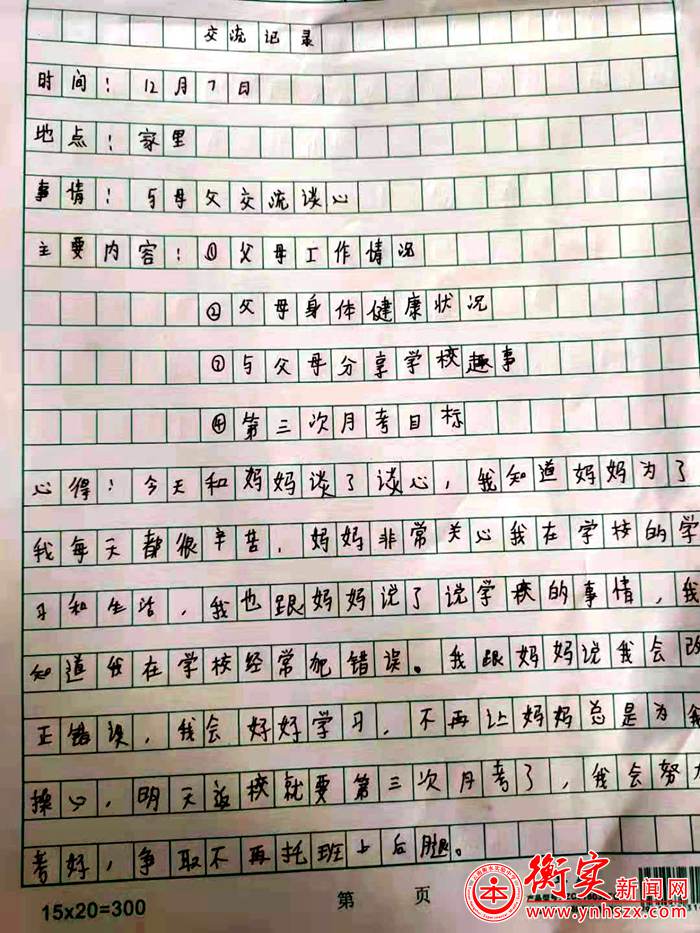 交流记录
时间：12月7日
地点：家里
事情：与母父交流谈心
主要内容：①父母工作情况
②父母身体健康状况
③与父母分享学校趣事
④第三次月考目标
心得：今天和妈妈谈了谈心，我知道妈妈为了
我每天都很辛苦，妈妈非常关心我在学校的学
习和生活，我也跟妈妈说了说学校的事情，我
知道我在学校经常犯错误。我跟妈妈说我会改
正错误，我会好好学习，不再让妈妈总是为我
操心，明天返校就要第三次月考了，我会努力
考好，争取不再托班上后腿。
15x20=300
第 页
衡实新闻网
www.ynhszx.com